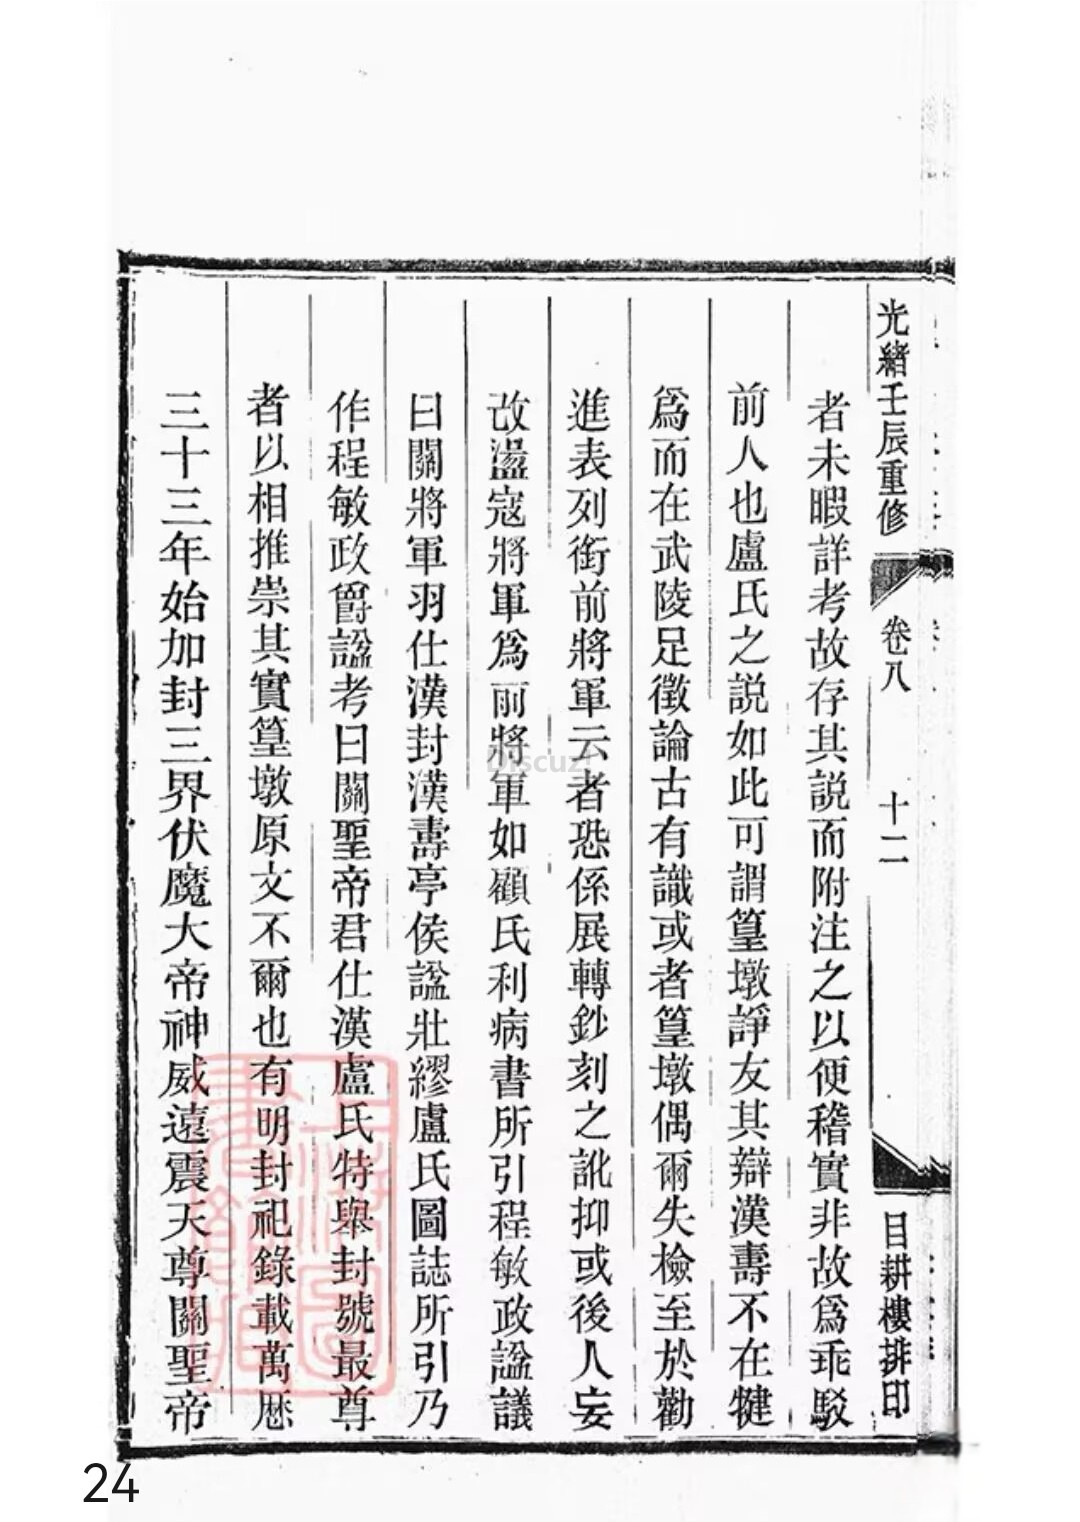 光緒壬辰重修 卷八 十二 目耕樓排印
者未暇詳考故存其説而附注之以便稽實非故爲乖駁
前人也盧氏之説如此可謂篁墩諍友其辯漢壽不在犍
爲而在武陵足徵論古有識或者篁墩偶爾失檢至於勸
進表列銜前將軍云者恐係展轉鈔刻之訛抑或後人妄
改盪寇將軍爲前將軍如顧氏利病書所引程敏政謚議
曰關將軍羽仕漢封漢壽亭侯謚壯繆盧氏圖誌所引乃
作程敏政爵謚考曰關聖帝君仕漢盧氏特舉封號最尊
者以相推崇其實篁墩原文不爾也有明封祀錄載萬歷
三十三年始加封三界伏魔大帝神威遠震天尊關聖帝
上海圖
書館藏
Discuz!
24